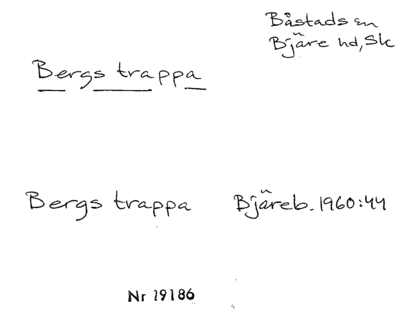 Båstads sn
Bjäre hd, Sk
Bergs trappa
Bergs trappa Bjäreb. 1960:44
Nr 19186